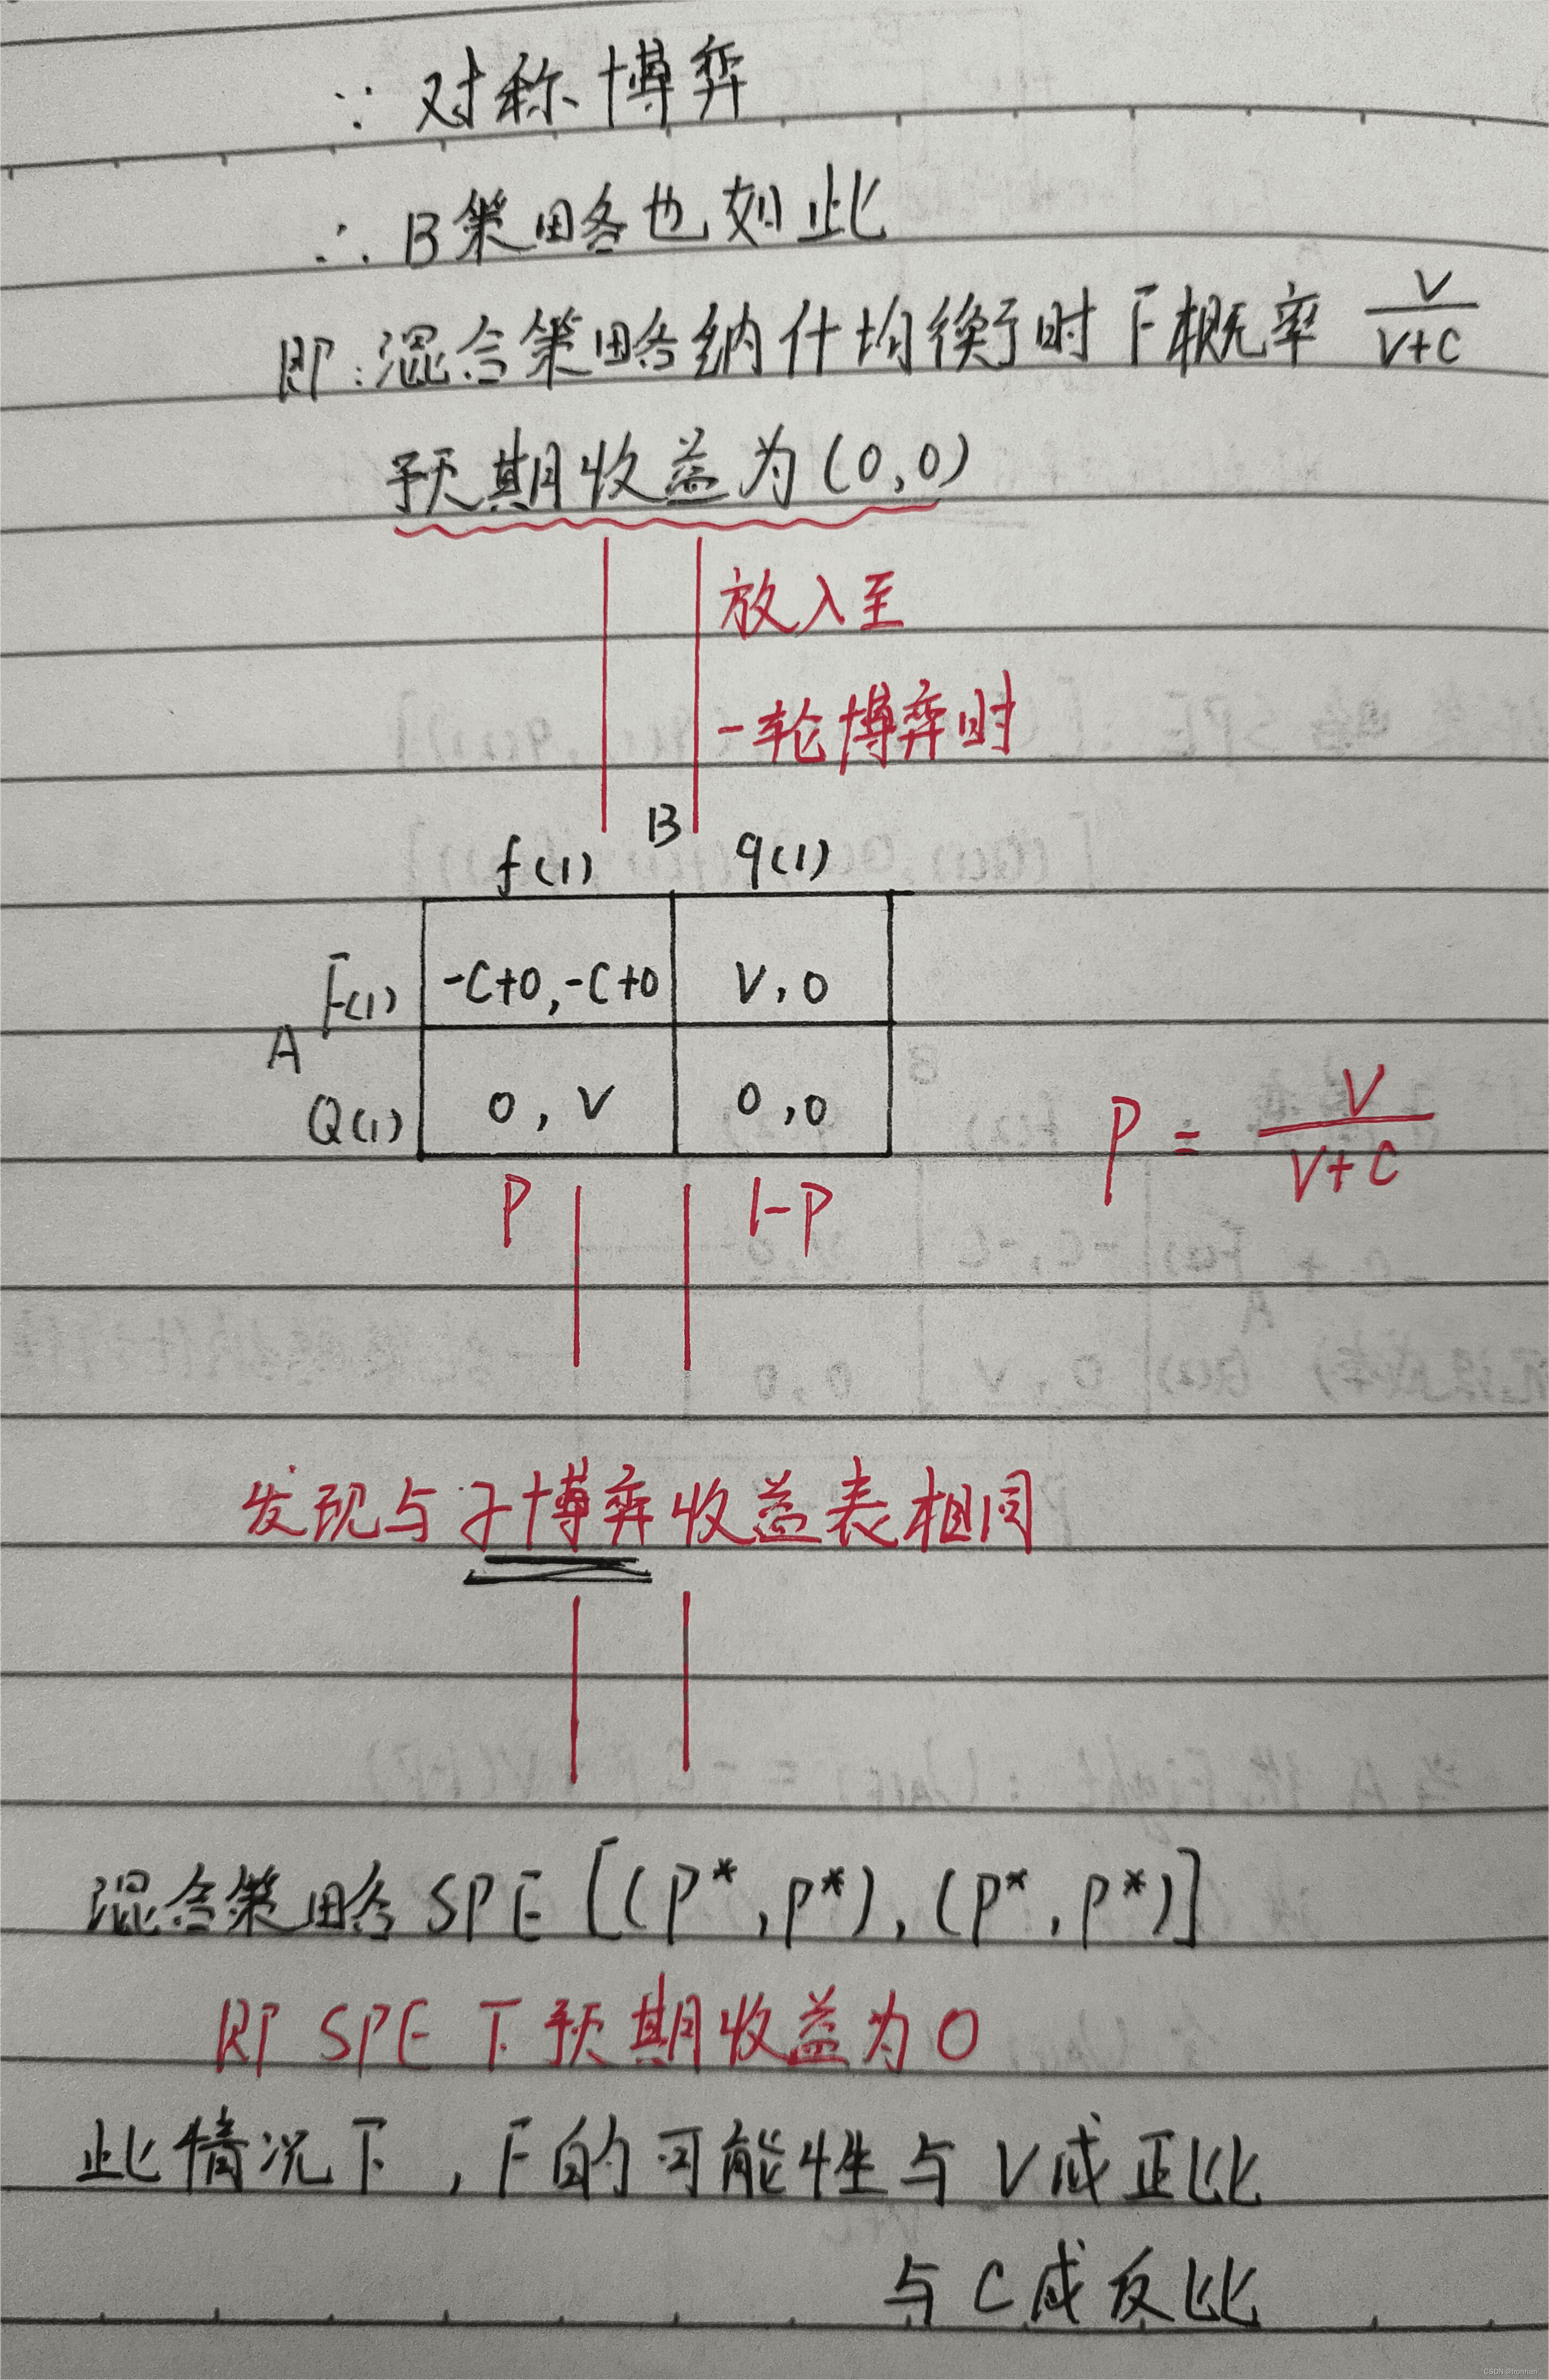 ∵ 对称博弈
∴ B策略也如此
即:混合策略纳什均衡时 F概率 V/(V+C)
预期收益为(0,0)
放入至
一轮博弈时
B
f(1) q(1)
F(1) -C+0,-C+0 V,0
A
Q(1) 0,V 0,0
P = V/(V+C)
P 1-P
发现与子博弈收益表相同
混合策略SPE [(P*,P*),(P*,P*)]
即 SPE 下预期收益为0
此情况下,F的可能性与V成正比
与C成反比